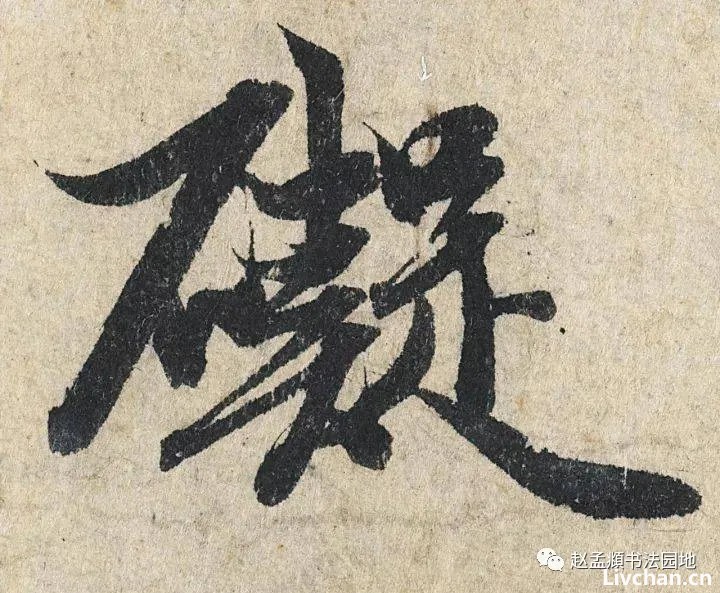 礙
赵孟頫书法园地
Livchan.cn